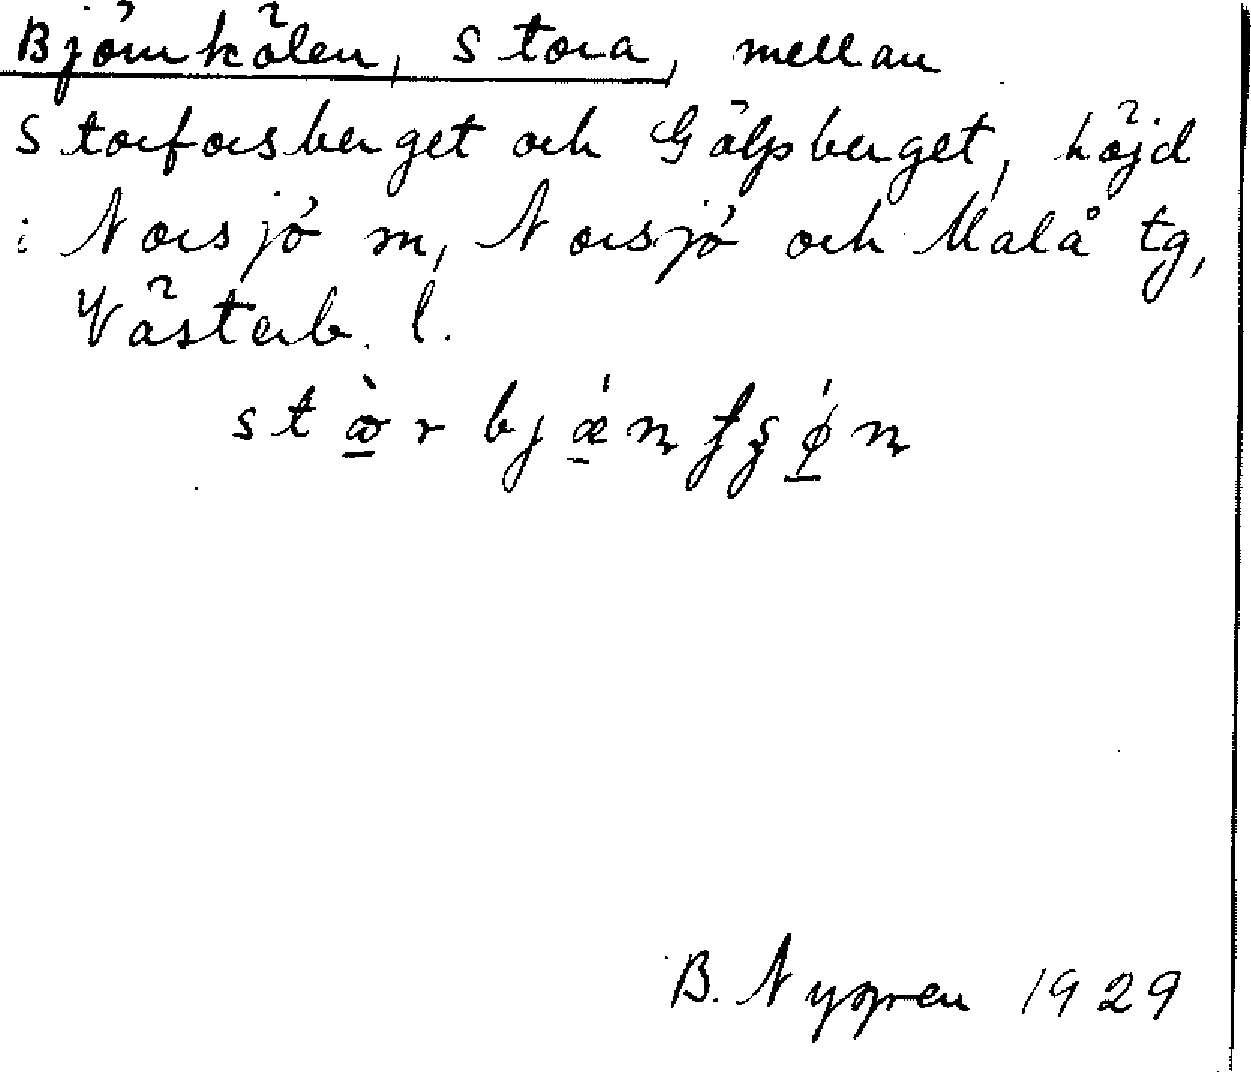 Björnkölen, Stora, mellan
Storforsberget och Gälpsberget, höjd
i Norsjö m, Norsjö och Malå tg,
Västerb. l.
B. Nygren 1929